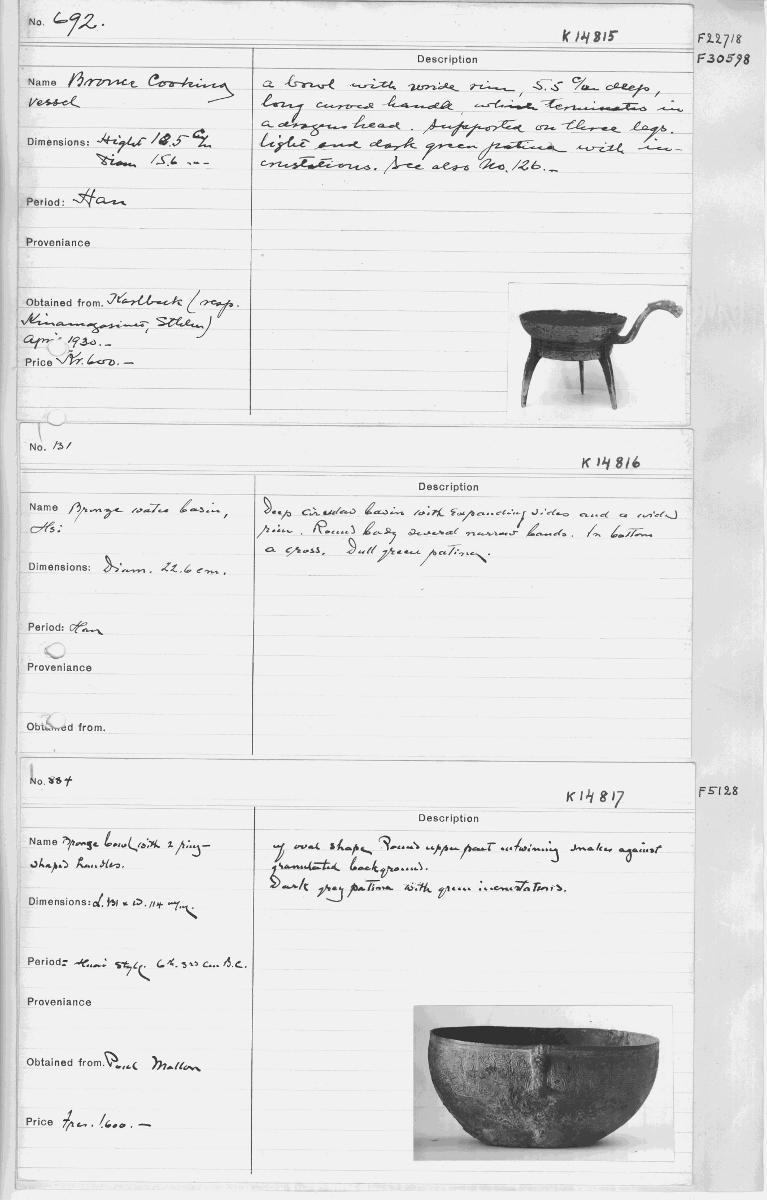 No. 692.
K 14815
F22718
F30598
Description
Name Bronze Cooking
vessel
a bowl with wide rim, 5.5 c/m deep,
long curved handle which terminates in
a dragonshead. Supported on three legs.
light and dark green patina with in-
crustations. See also No. 126.-
Dimensions: Hight 12.5 c/m
Diam 15.6 -"-
Period: Han
Proveniance
Obtained from. Karlbeck (resp.
Kinamagasinet, Sthlm)
Apr 1930.-
Price Kr. 600.-
No. 131
K 14816
Description
Name Bronze water basin,
Hsi
Deep circular basin with expanding sides and a wide
rim. Round body several narrow bands. In bottom
a cross. Dull green patina.
Dimensions: Diam. 22.6 cm.
Period: Han
Proveniance
Obtained from.
No. 884
K 14817
F5128
Description
Name Bronze bowl with 2 ring-
shaped handles.
of oval shape. Round upper part intwining snakes against
granulated background.
Dark gray patina with green incrustations.
Dimensions: L. 131 x W. 114 m/m.
Period: Huai style. 6th. 3rd Cen B.C.
Proveniance
Obtained from. Paul Mallon
Price frcs. 1.600.-